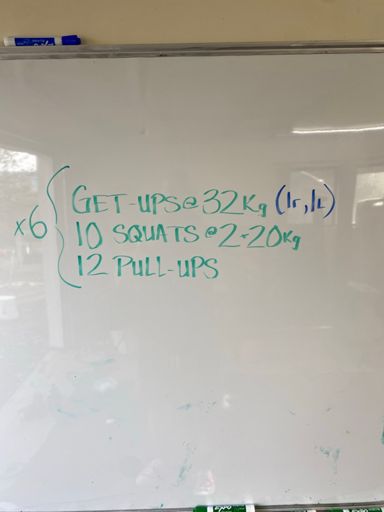 EXPO
x6
GET-UPS@32Kg (1r,1L)
10 SQUATS @2-20Kg
12 PULL-UPS
EXPO